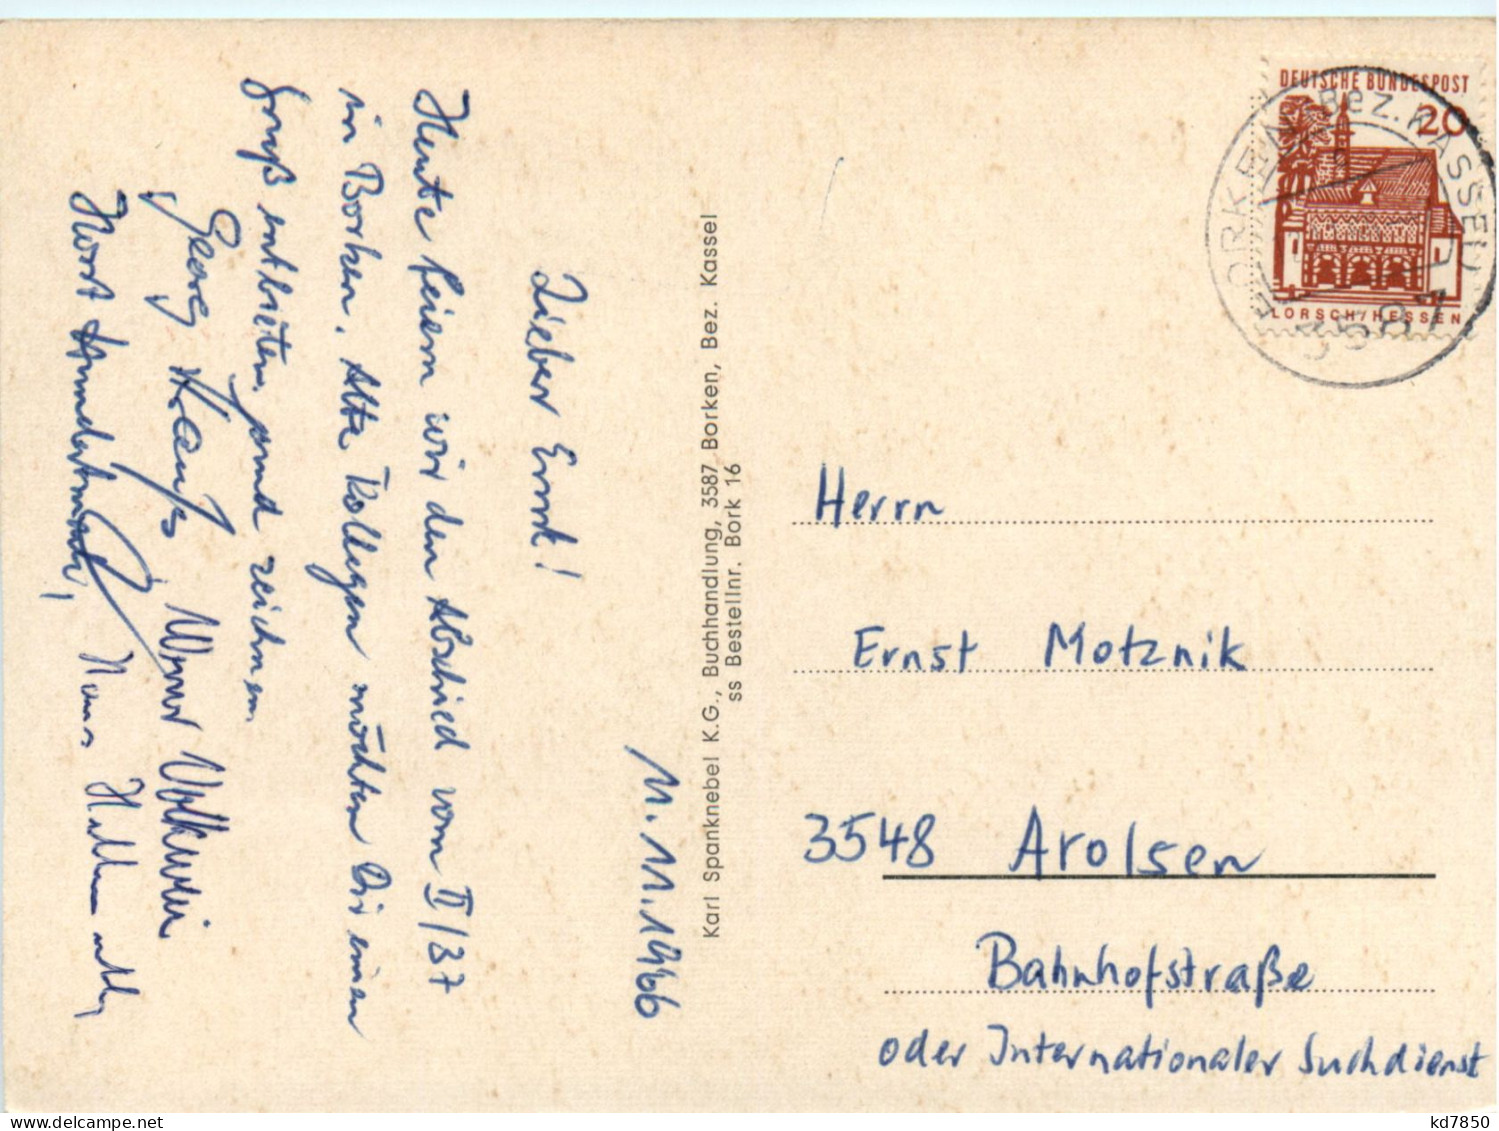 11.11.1966
Lieber Ernst!
Heute feiern wir den Abschied vom II/37
in Borken. Alte Kollegen möchten Dir einen
Gruß entbieten und zeichnen.
Georg Werner
Horst Hans
Karl Spanknebel K.G., Buchhandlung, 3587 Borken, Bez. Kassel
ss Bestellnr. Bork 16
DEUTSCHE BUNDESPOST
20
LORSCH/HESSEN
BORKEN Bez. KASSEL
3587
Herrn
Ernst Motznik
3548 Arolsen
Bahnhofstraße
oder Internationaler Suchdienst
kd7850